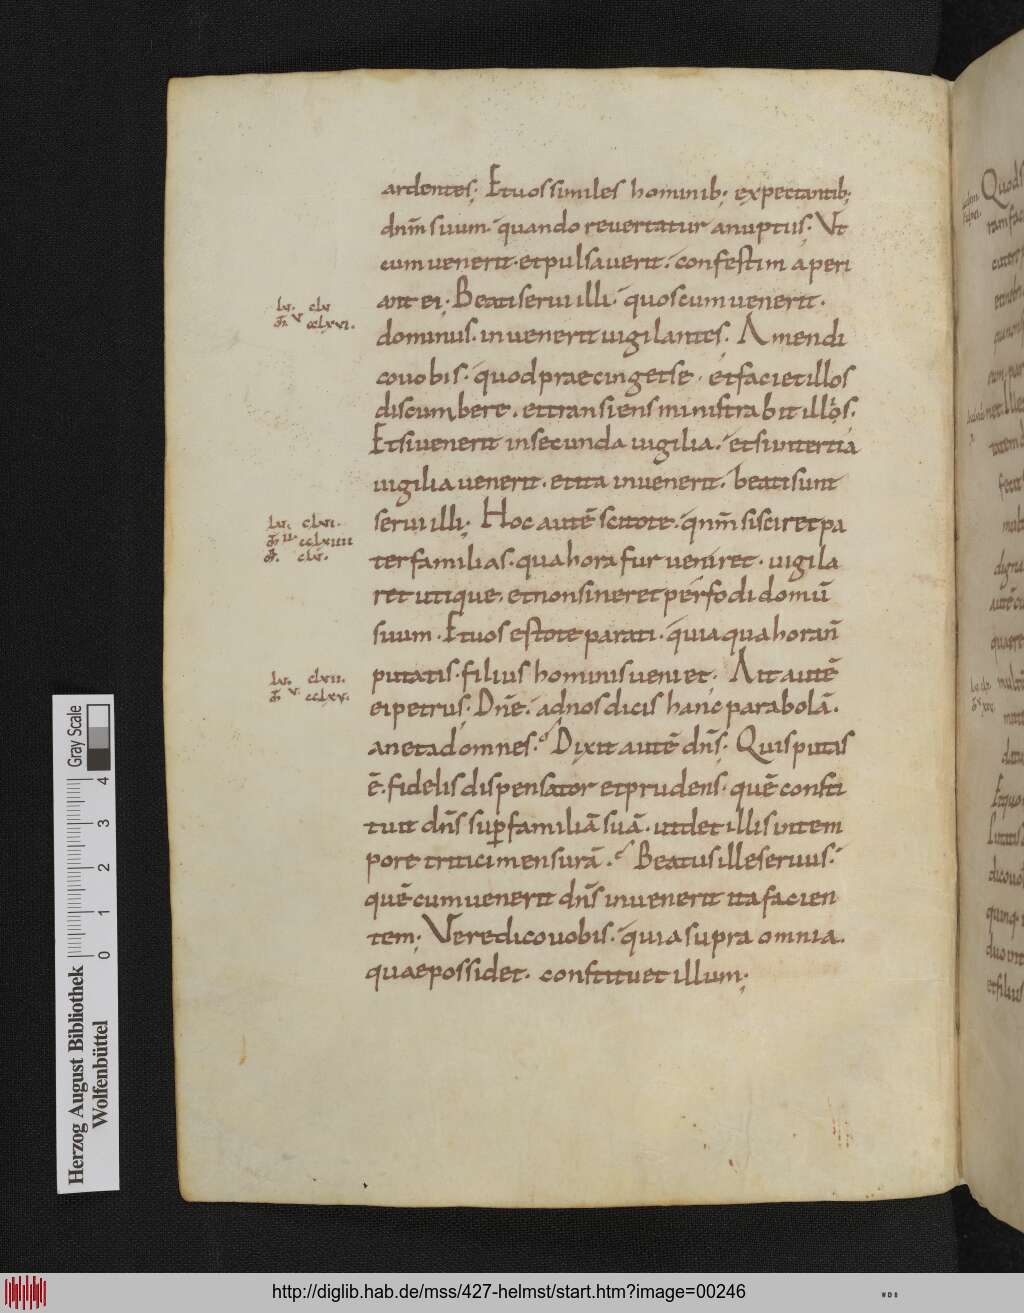 ardentes; Et uos similes hominib; expectantib;
dnm̄ suum · quando reuertatur anuptiis · Vt
cum uenerit · et pulsauerit · confestim aperi
ant ei; Beati serui illi · quos cum uenerit ·
lu. clx
v cclxvi.
dominus · inuenerit uigilantes; Amen di
co uobis · quod praecinget se · et faciet illos
discumbere · et transiens ministrabit illis;
Et si uenerit in secunda uigilia · et si in tertia
uigilia uenerit · et ita inuenerit · beati sunt
serui illi; Hoc autē scitote · qnm̄ si sciret pa
lu. clxi.
ii cclxiiii
clu.
terfamilias · qua hora fur ueniret · uigila
ret utique · et non sineret perfodi domū
suum · Et uos estote parati · quia qua hora n̄
lu. clxii.
v. cclxv.
putatis · filius hominis ueniet; Ait autē
ei petrus; Dn̄e · ad nos dicis hanc parabolā ·
an et ad omnes · Dixit autē dn̄s; Quis putas
ē · fidelis dispensator et prudens · quē consti
tuit dn̄s sup̄ familiā suā · ut det illis in tem
pore tritici mensurā · Beatus ille seruus ·
quē cum uenerit dn̄s inuenerit ita facien
tem; Vere dico uobis · quia supra omnia ·
quae possidet · constituet illum;
Quod s
Gray Scale
4
3
2
1
0
Herzog August Bibliothek
Wolfenbüttel
http://diglib.hab.de/mss/427-helmst/start.htm?image=00246